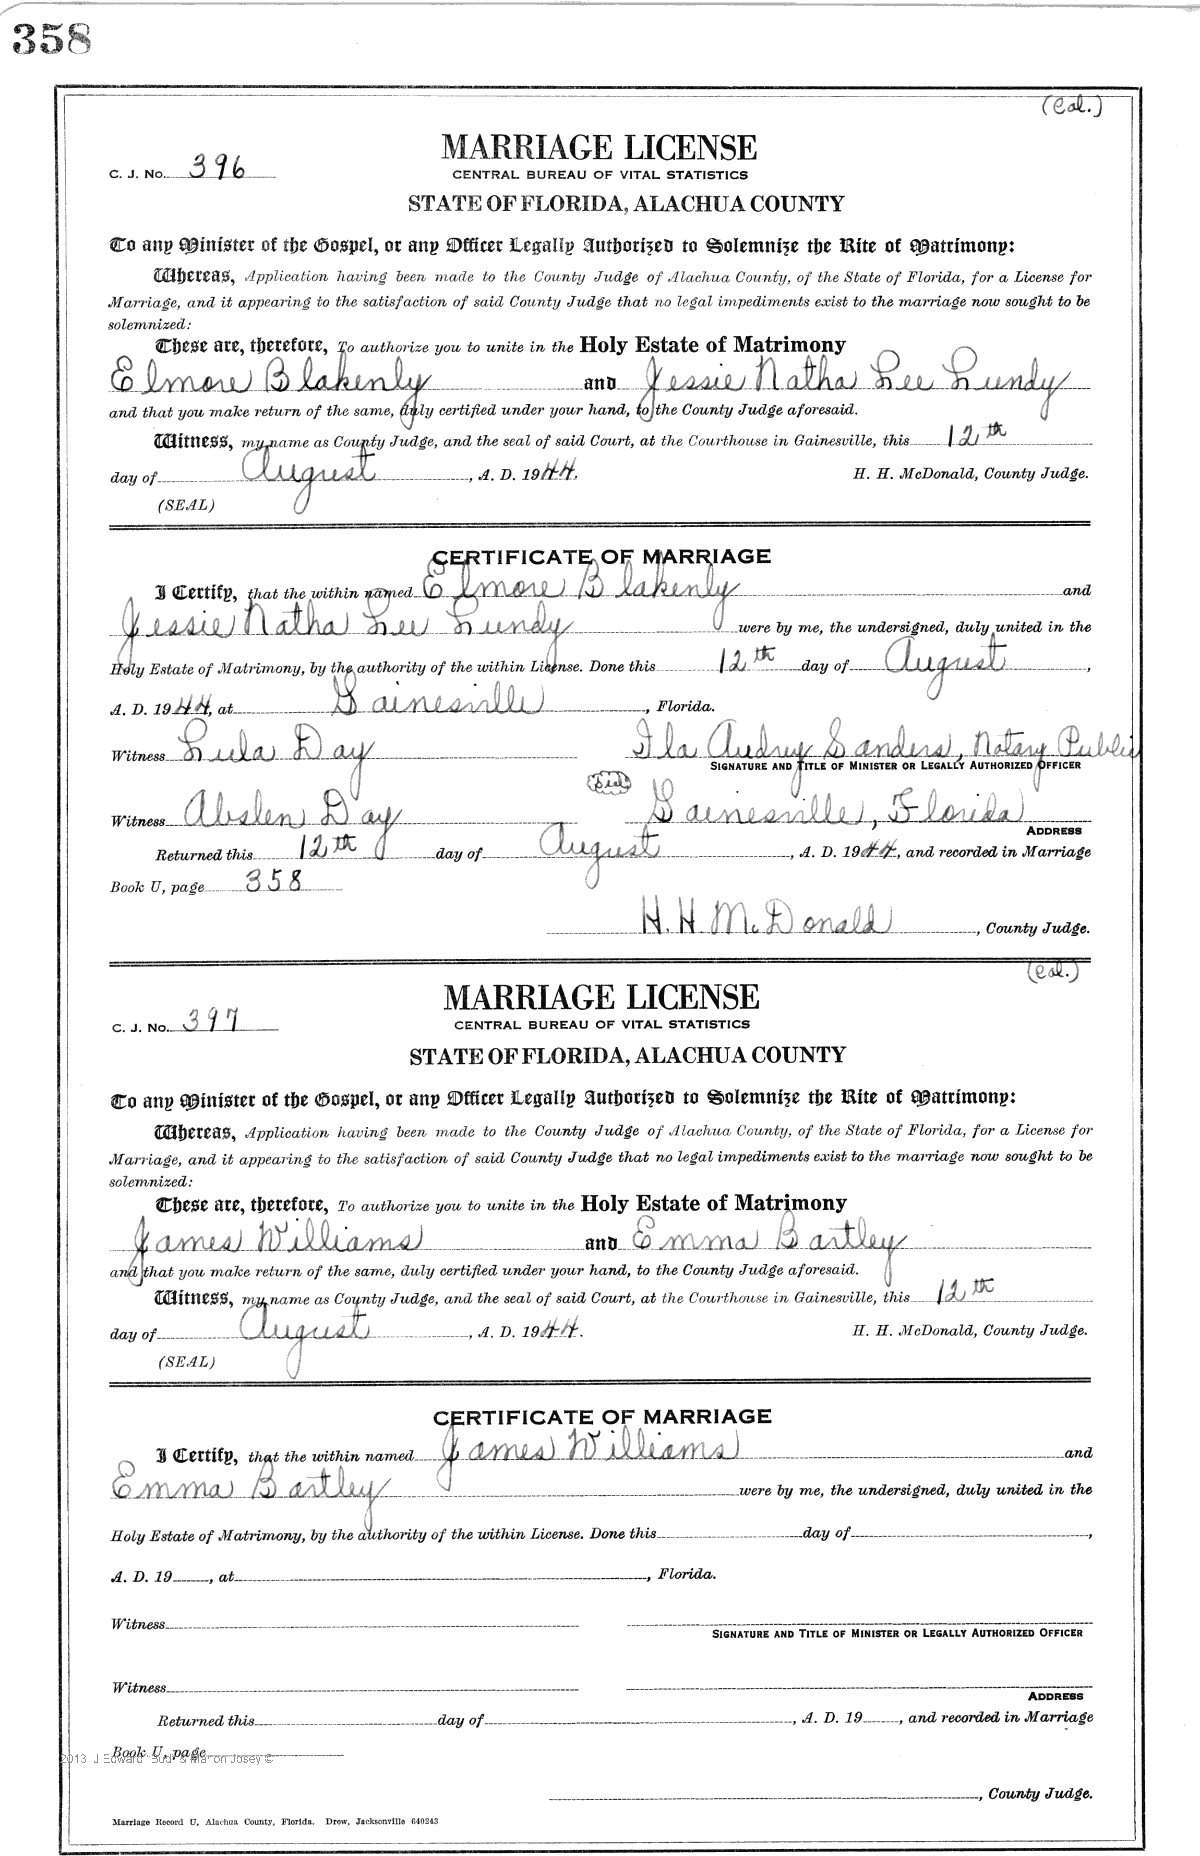 358
(Col.)
MARRIAGE LICENSE
C. J. No. 396
CENTRAL BUREAU OF VITAL STATISTICS
STATE OF FLORIDA, ALACHUA COUNTY
To any Minister of the Gospel, or any Officer Legally Authorized to Solemnize the Rite of Matrimony:
Whereas, Application having been made to the County Judge of Alachua County, of the State of Florida, for a License for
Marriage, and it appearing to the satisfaction of said County Judge that no legal impediments exist to the marriage now sought to be
solemnized:
These are, therefore, To authorize you to unite in the Holy Estate of Matrimony
Elmore Blakenly and Jessie Natha Lee Lundy
and that you make return of the same, duly certified under your hand, to the County Judge aforesaid.
Witness, my name as County Judge, and the seal of said Court, at the Courthouse in Gainesville, this 12th
day of August, A. D. 1944. H. H. McDonald, County Judge.
(SEAL)
CERTIFICATE OF MARRIAGE
I Certify, that the within named Elmore Blakenly and
Jessie Natha Lee Lundy were by me, the undersigned, duly united in the
Holy Estate of Matrimony, by the authority of the within License. Done this 12th day of August,
A. D. 1944, at Gainesville, Florida.
Witness Lula Day Ila Audrey Sanders, Notary Public
SIGNATURE AND TITLE OF MINISTER OR LEGALLY AUTHORIZED OFFICER
(Seal)
Witness Abslen Day Gainesville, Florida
ADDRESS
Returned this 12th day of August, A. D. 1944, and recorded in Marriage
Book U, page 358
H. H. McDonald, County Judge.
(Col.)
MARRIAGE LICENSE
C. J. No. 397
CENTRAL BUREAU OF VITAL STATISTICS
STATE OF FLORIDA, ALACHUA COUNTY
To any Minister of the Gospel, or any Officer Legally Authorized to Solemnize the Rite of Matrimony:
Whereas, Application having been made to the County Judge of Alachua County, of the State of Florida, for a License for
Marriage, and it appearing to the satisfaction of said County Judge that no legal impediments exist to the marriage now sought to be
solemnized:
These are, therefore, To authorize you to unite in the Holy Estate of Matrimony
James Williams and Emma Bartley
and that you make return of the same, duly certified under your hand, to the County Judge aforesaid.
Witness, my name as County Judge, and the seal of said Court, at the Courthouse in Gainesville, this 12th
day of August, A. D. 1944. H. H. McDonald, County Judge.
(SEAL)
CERTIFICATE OF MARRIAGE
I Certify, that the within named James Williams and
Emma Bartley were by me, the undersigned, duly united in the
Holy Estate of Matrimony, by the authority of the within License. Done this day of ,
A. D. 19 , at , Florida.
Witness
SIGNATURE AND TITLE OF MINISTER OR LEGALLY AUTHORIZED OFFICER
Witness
ADDRESS
Returned this day of , A. D. 19 , and recorded in Marriage
Book U, page
2013 J Edward Josey ©
, County Judge.
Marriage Record U, Alachua County, Florida. Drew, Jacksonville 640243